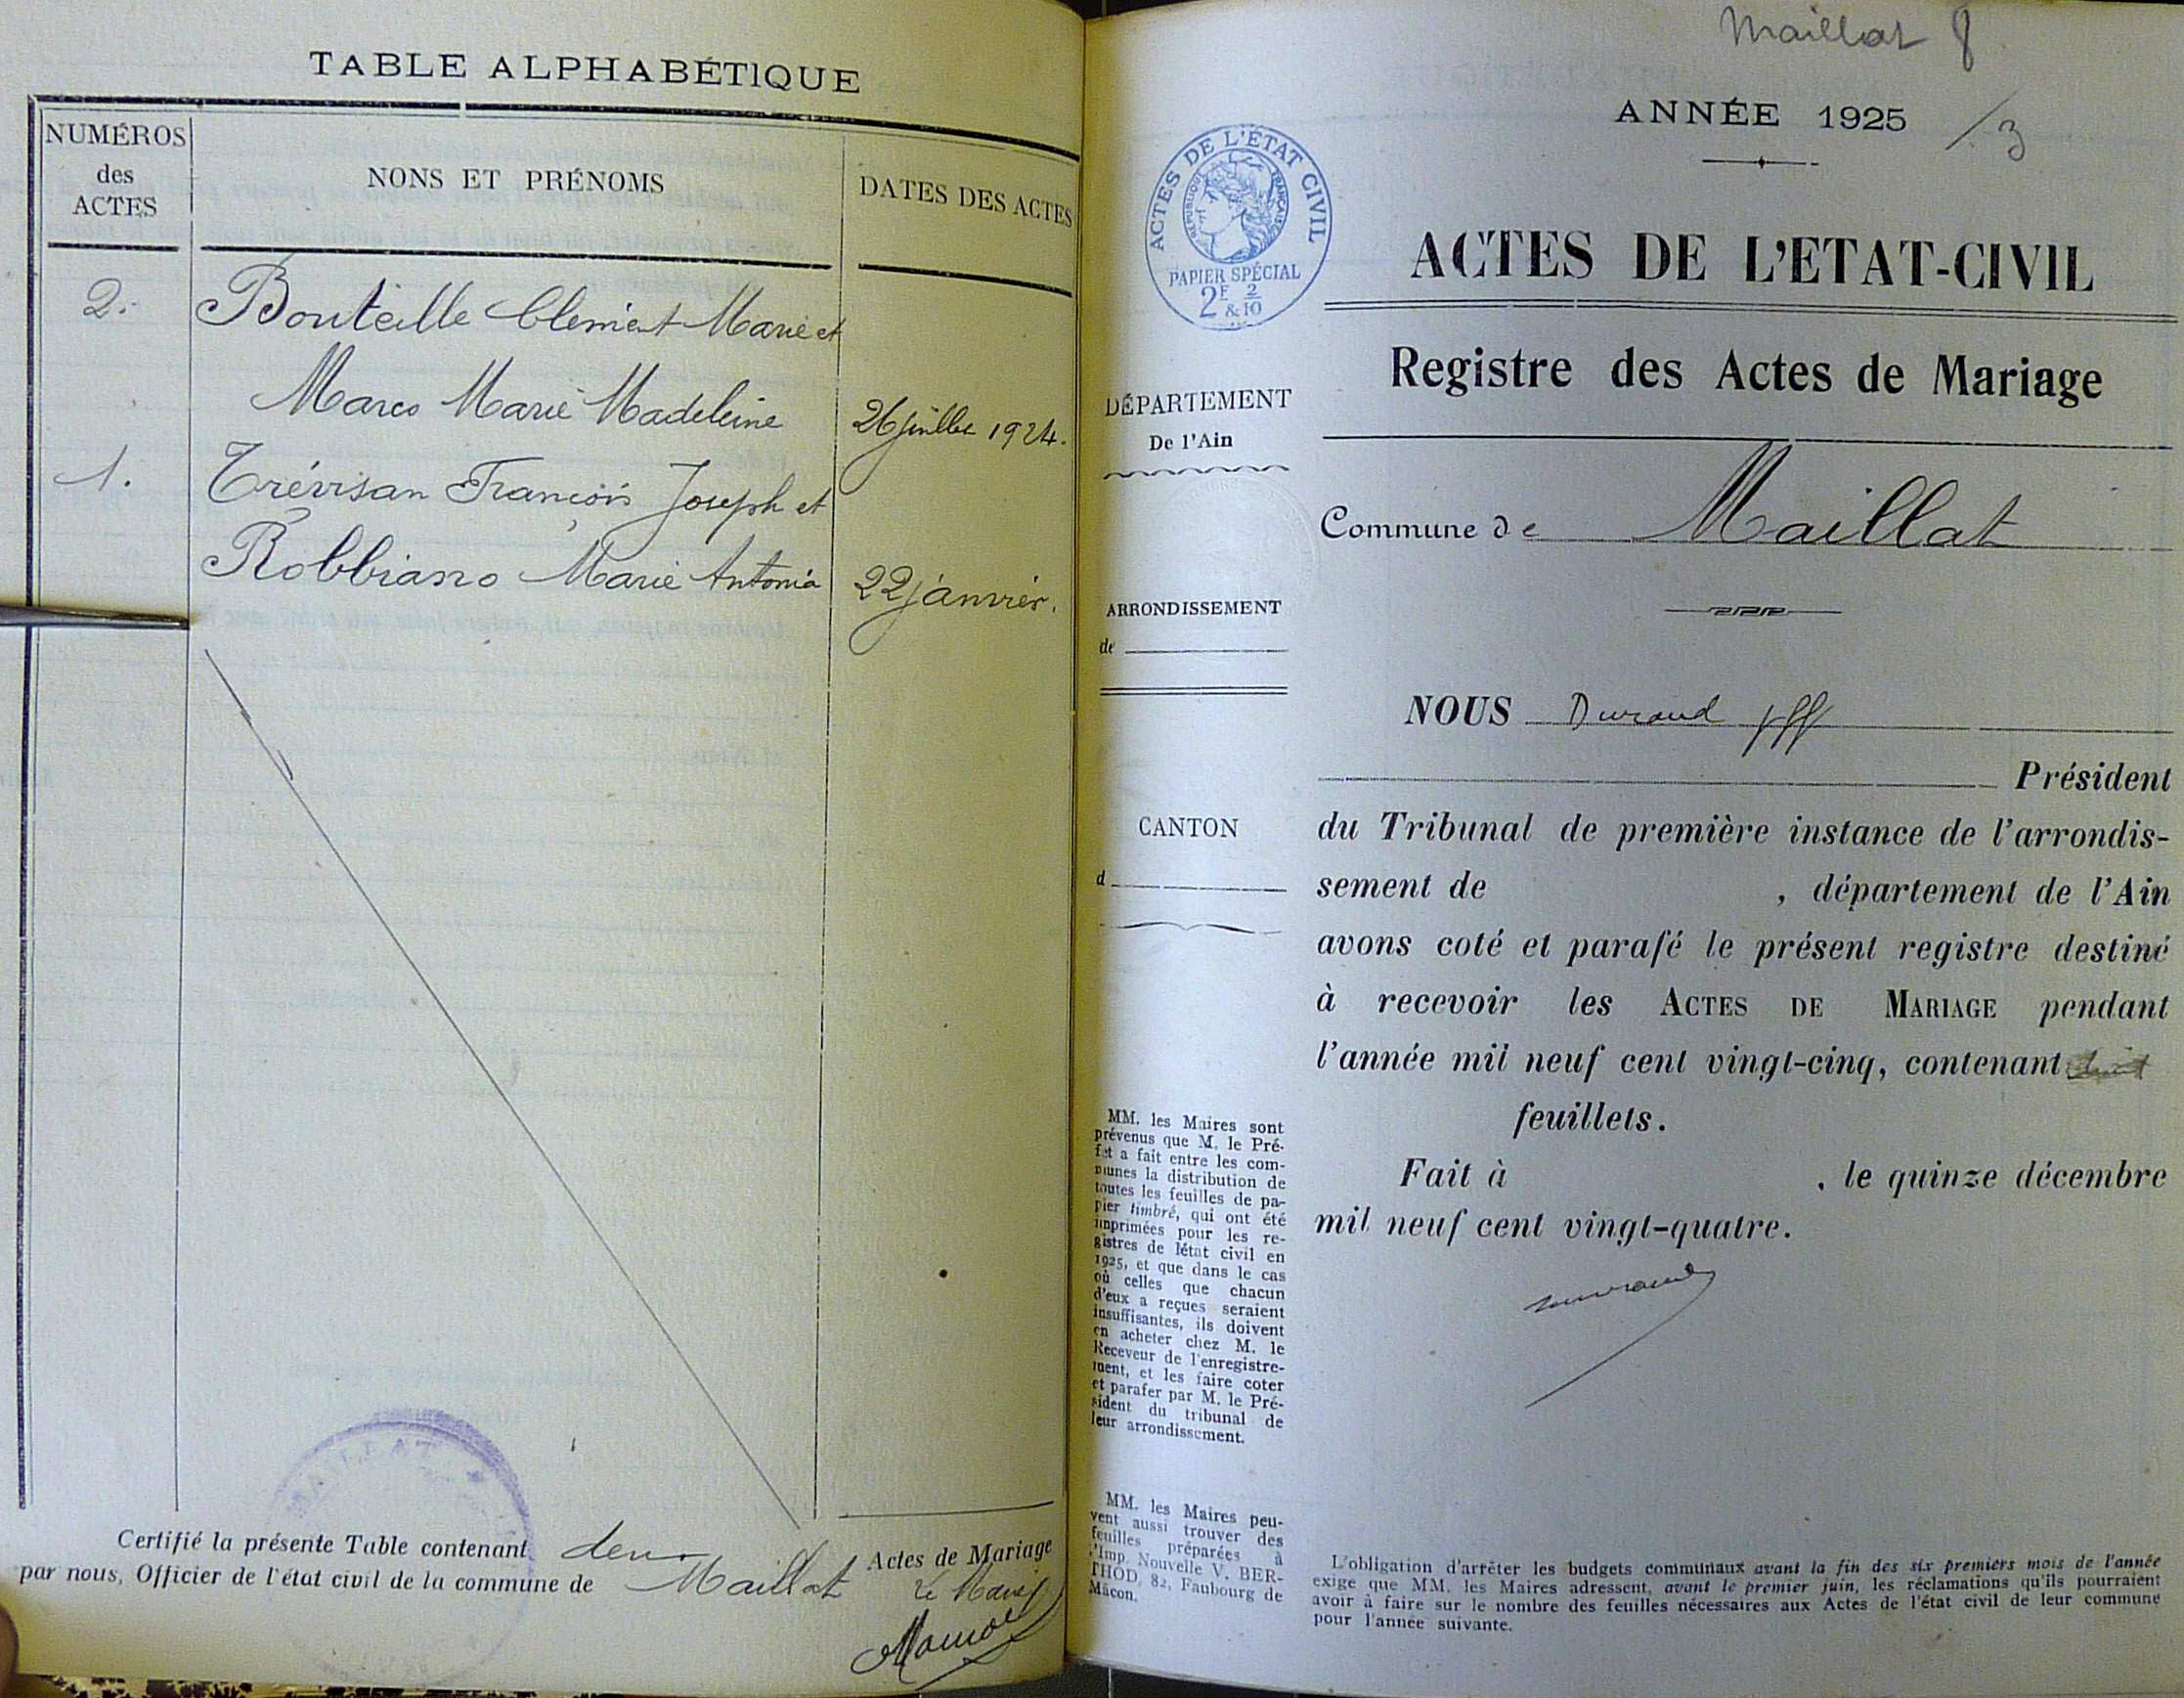 TABLE ALPHABÉTIQUE
NUMÉROS
des
ACTES
NONS ET PRÉNOMS
DATES DES ACTES
2. Bouteille Clément Marie et
Marco Marie Madeleine 26 juillet 1924.
1. Trévisan François Joseph et
Robbiano Marie Antonia 22 janvier.
MAILLAT
Certifié la présente Table contenant deux Actes de Mariage
par nous, Officier de l'état civil de la commune de Maillat
Le Maire
Maillat 8
ANNÉE 1925 /3
ACTES DE L'ÉTAT CIVIL
RÉPUBLIQUE FRANÇAISE
PAPIER SPÉCIAL
2F & 2/10
ACTES DE L'ETAT-CIVIL
Registre des Actes de Mariage
DÉPARTEMENT
De l'Ain
Commune de Maillat
ARRONDISSEMENT
de
CANTON
d
NOUS Durand
Président
du Tribunal de première instance de l'arrondis-
sement de , département de l'Ain
avons coté et parafé le présent registre destiné
à recevoir les ACTES DE MARIAGE pendant
l'année mil neuf cent vingt-cinq, contenant
feuillets.
Fait à , le quinze décembre
mil neuf cent vingt-quatre.
MM. les Maires sont
prévenus que M. le Pré-
fet a fait entre les com-
munes la distribution de
toutes les feuilles de pa-
pier timbré, qui ont été
imprimées pour les re-
gistres de létat civil en
1925, et que dans le cas
où celles que chacun
d'eux a reçues seraient
insuffisantes, ils doivent
en acheter chez M. le
Receveur de l'enregistre-
ment, et les faire coter
et parafer par M. le Pré-
sident du tribunal de
leur arrondissement.
MM. les Maires peu-
vent aussi trouver des
feuilles préparées à
l'Imp. Nouvelle V. BER-
THOD, 82, Faubourg de
Mâcon.
L'obligation d'arrêter les budgets communaux avant la fin des six premiers mois de l'année
exige que MM. les Maires adressent, avant le premier juin, les réclamations qu'ils pourraient
avoir à faire sur le nombre des feuilles nécessaires aux Actes de l'état civil de leur commune
pour l'année suivante.